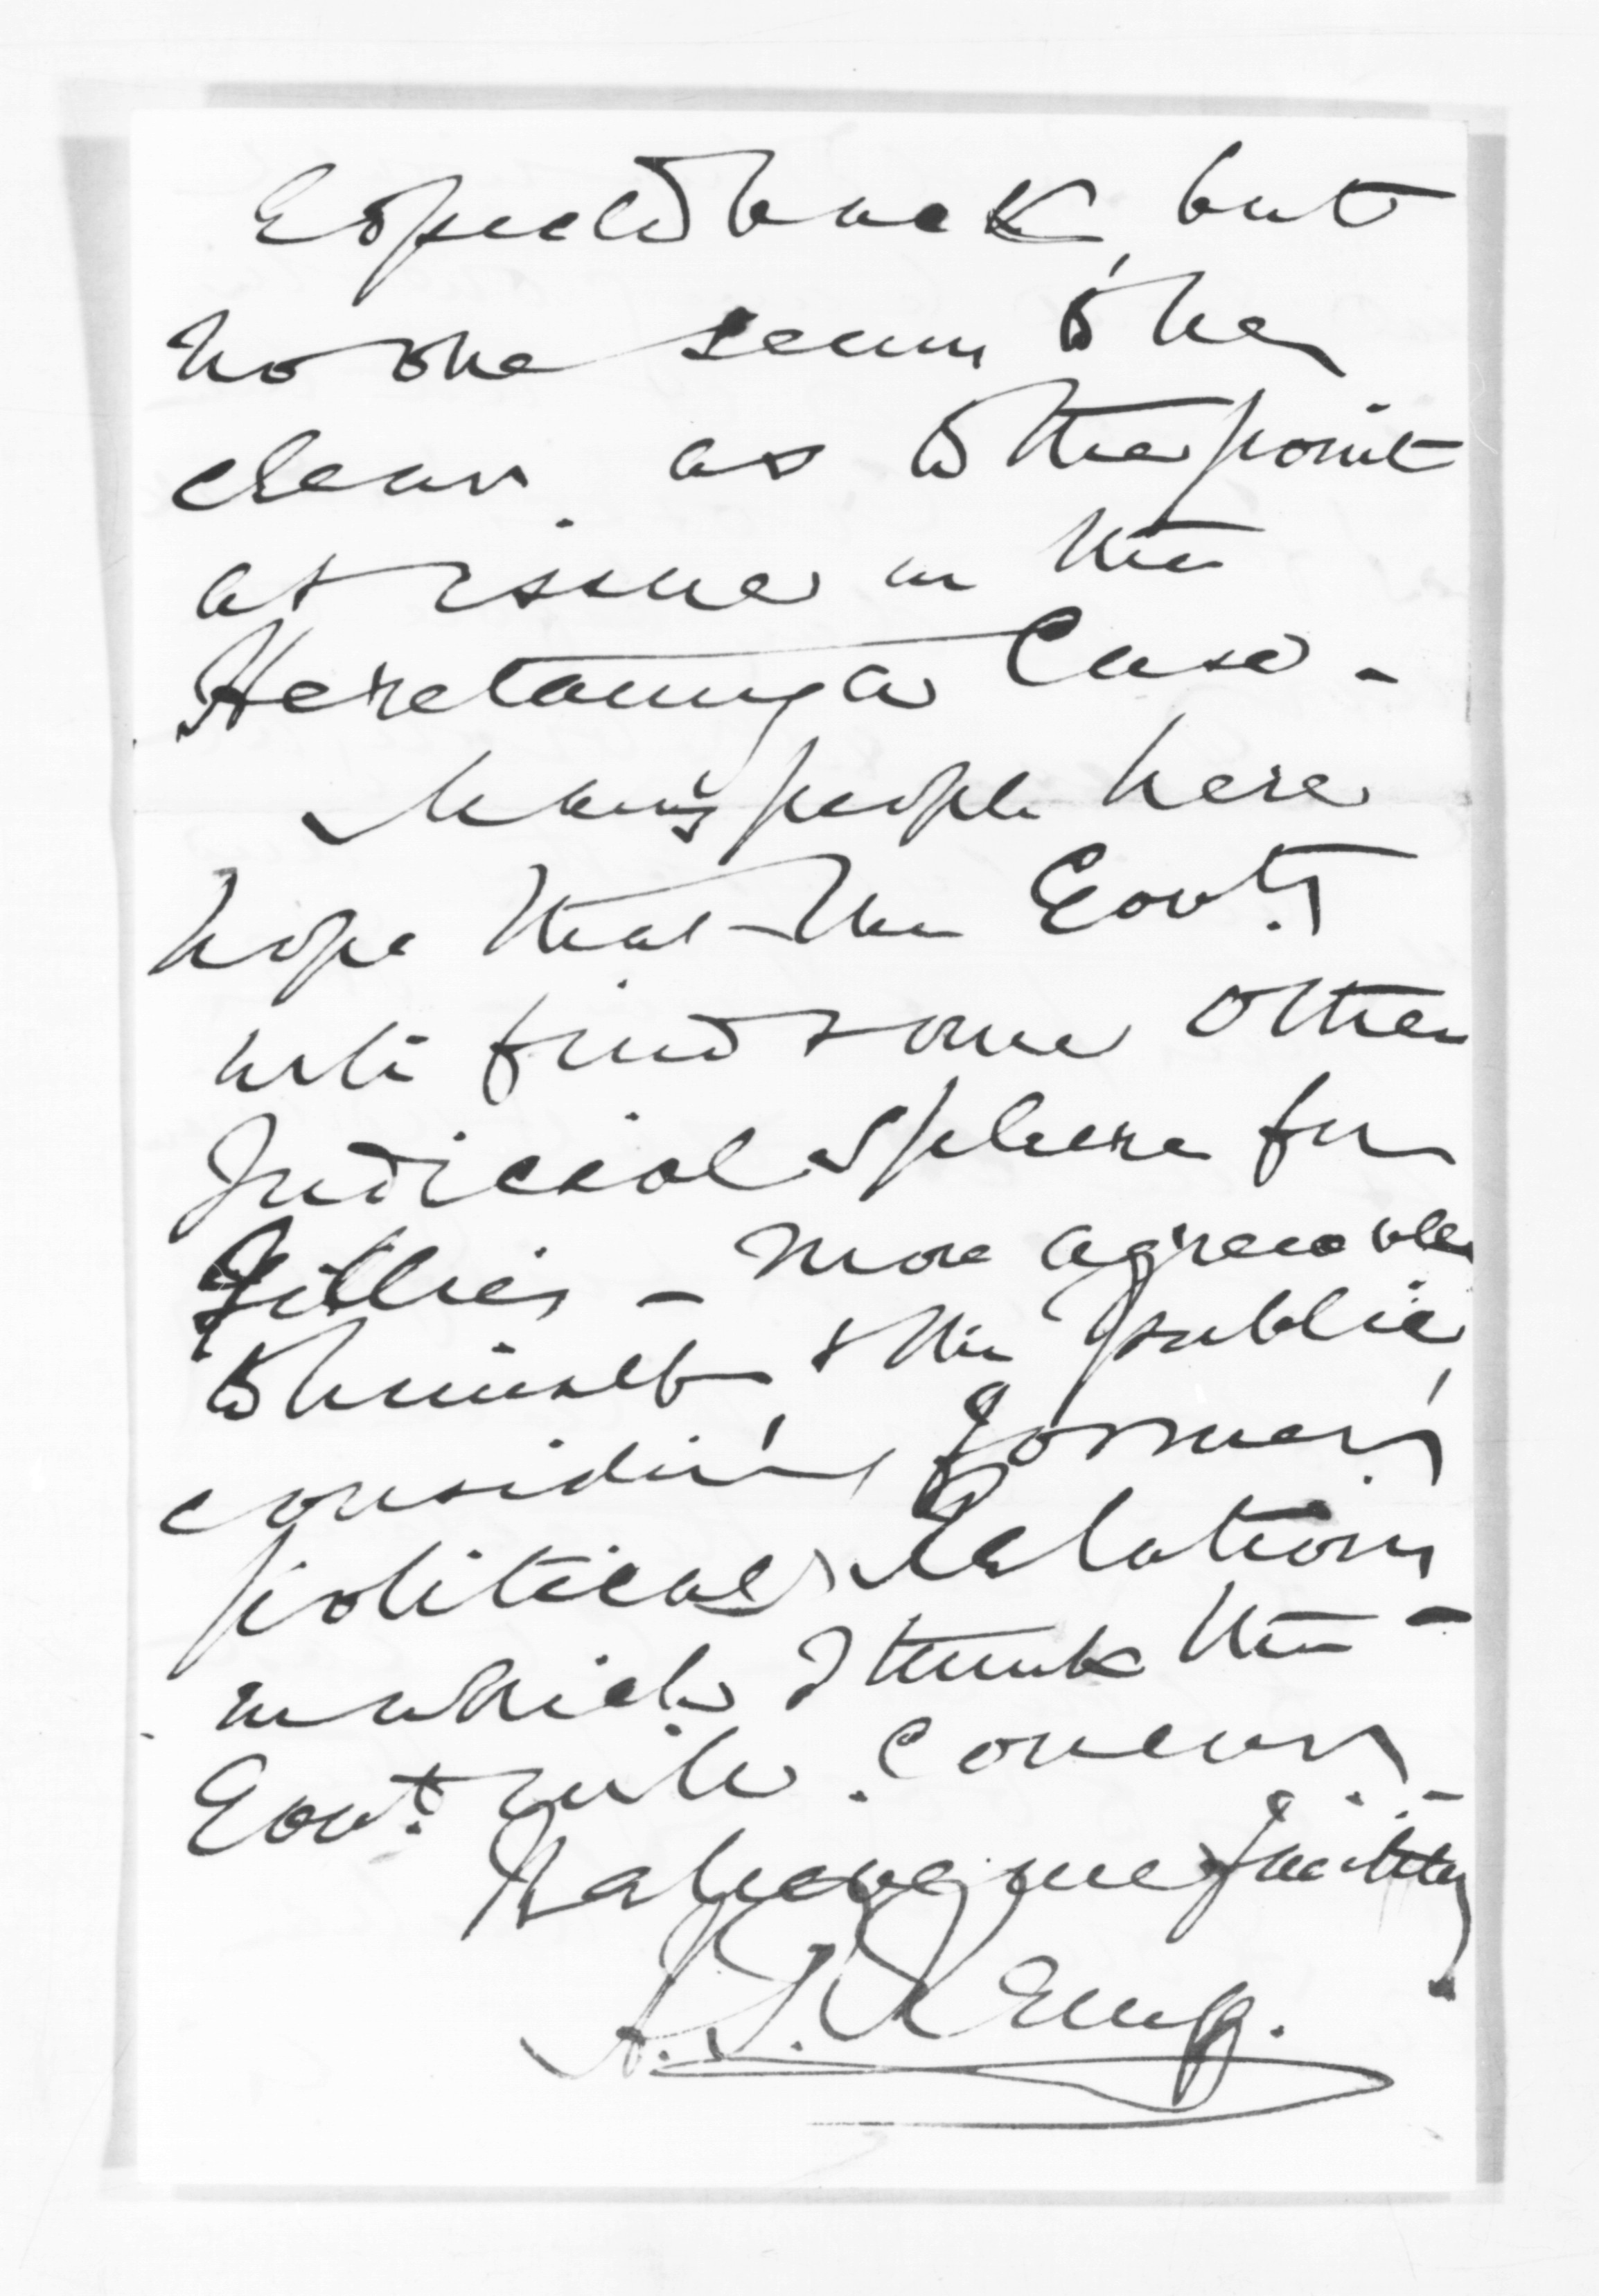 Expected back, but
no one seems to be
clear as to the point
at issue in the
Heretaunga Case -
Many people here
hope that the Govt.
will find some other
Judicial sphere for
Gillies - more agreeable
to himself & the public,
considering former
political relations
in which I think the -
Govt. will concur. -
Believe me faithfully
A. T. Kemp.